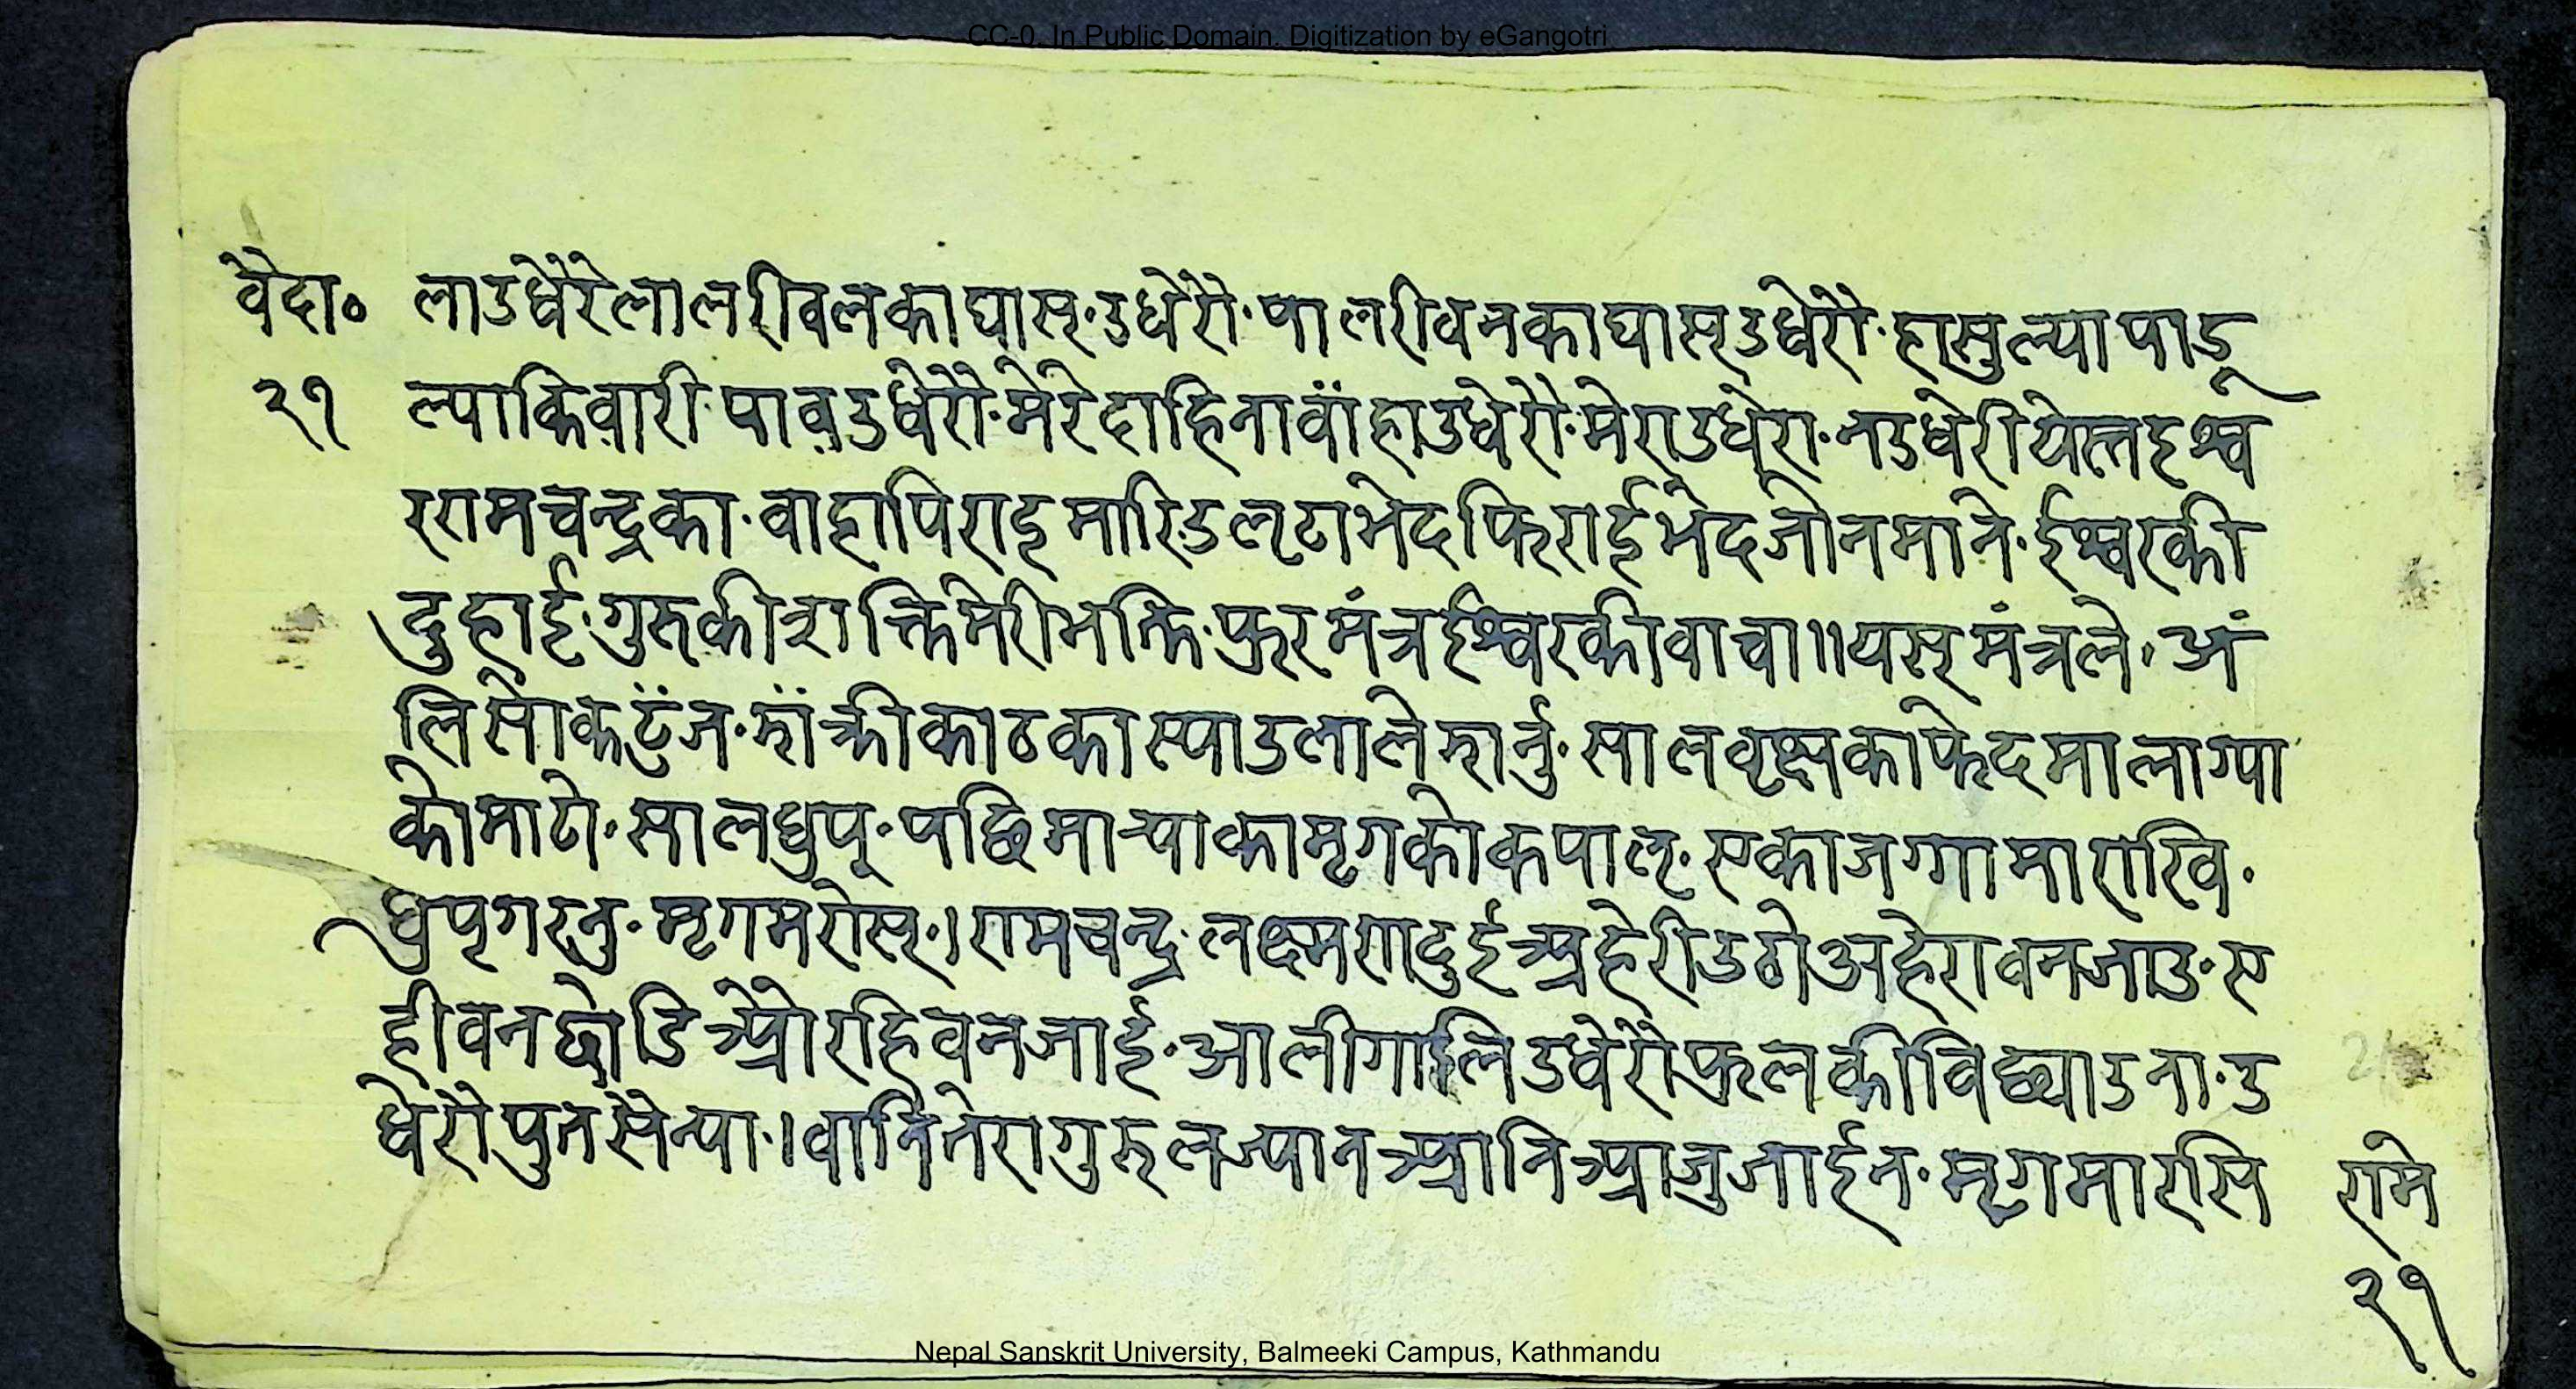 CC-0. In Public Domain. Digitization by eGangotri
वेदा० लाउधेरैरेलालरीवलकाघास्·उधेरौ·पालरीवनकाघास्उधेरौ·हासुल्यापाडू
२१ ल्याकिवारीपावउधेरौ·मेरेदाहिनावाँहाउधेरौ·मेराउधेरा·नउधेरीयेत्तइश्व
ररामचन्द्रका·वाहापिराइमारिउल्टाभेदफिराईभेदजोनमाने·ईश्वरकी
दुहाई·गुरुकीशक्तिमेरीभक्ति·फुरमंत्रईश्वरकीवाचा॥यस्मंत्रले·अं
लिसोकटँज·झाँक्रीकाठकास्याउलालेझार्नु·सालवृक्षकाफेदमालाग्या
कोमाटो·सालधुप्·पछिमार्‍याकामृगकोकपाल्·एकाजग्गामाराखि·
धुप्गरनु·मृगमरोस्·।रामचन्द्र·लक्ष्मणदुईअहेरीउठोअहेरावनजाउ·ए
हीवनछोडिओरहिवनजाई·आलीगालिउधेरौफुलकीविद्याउना·उ
धेरौपुनसेन्या·।वानितेरागुरुलज्यानआनिआजुजाईन·मृगमारसि राम
२१
Nepal Sanskrit University, Balmeeki Campus, Kathmandu